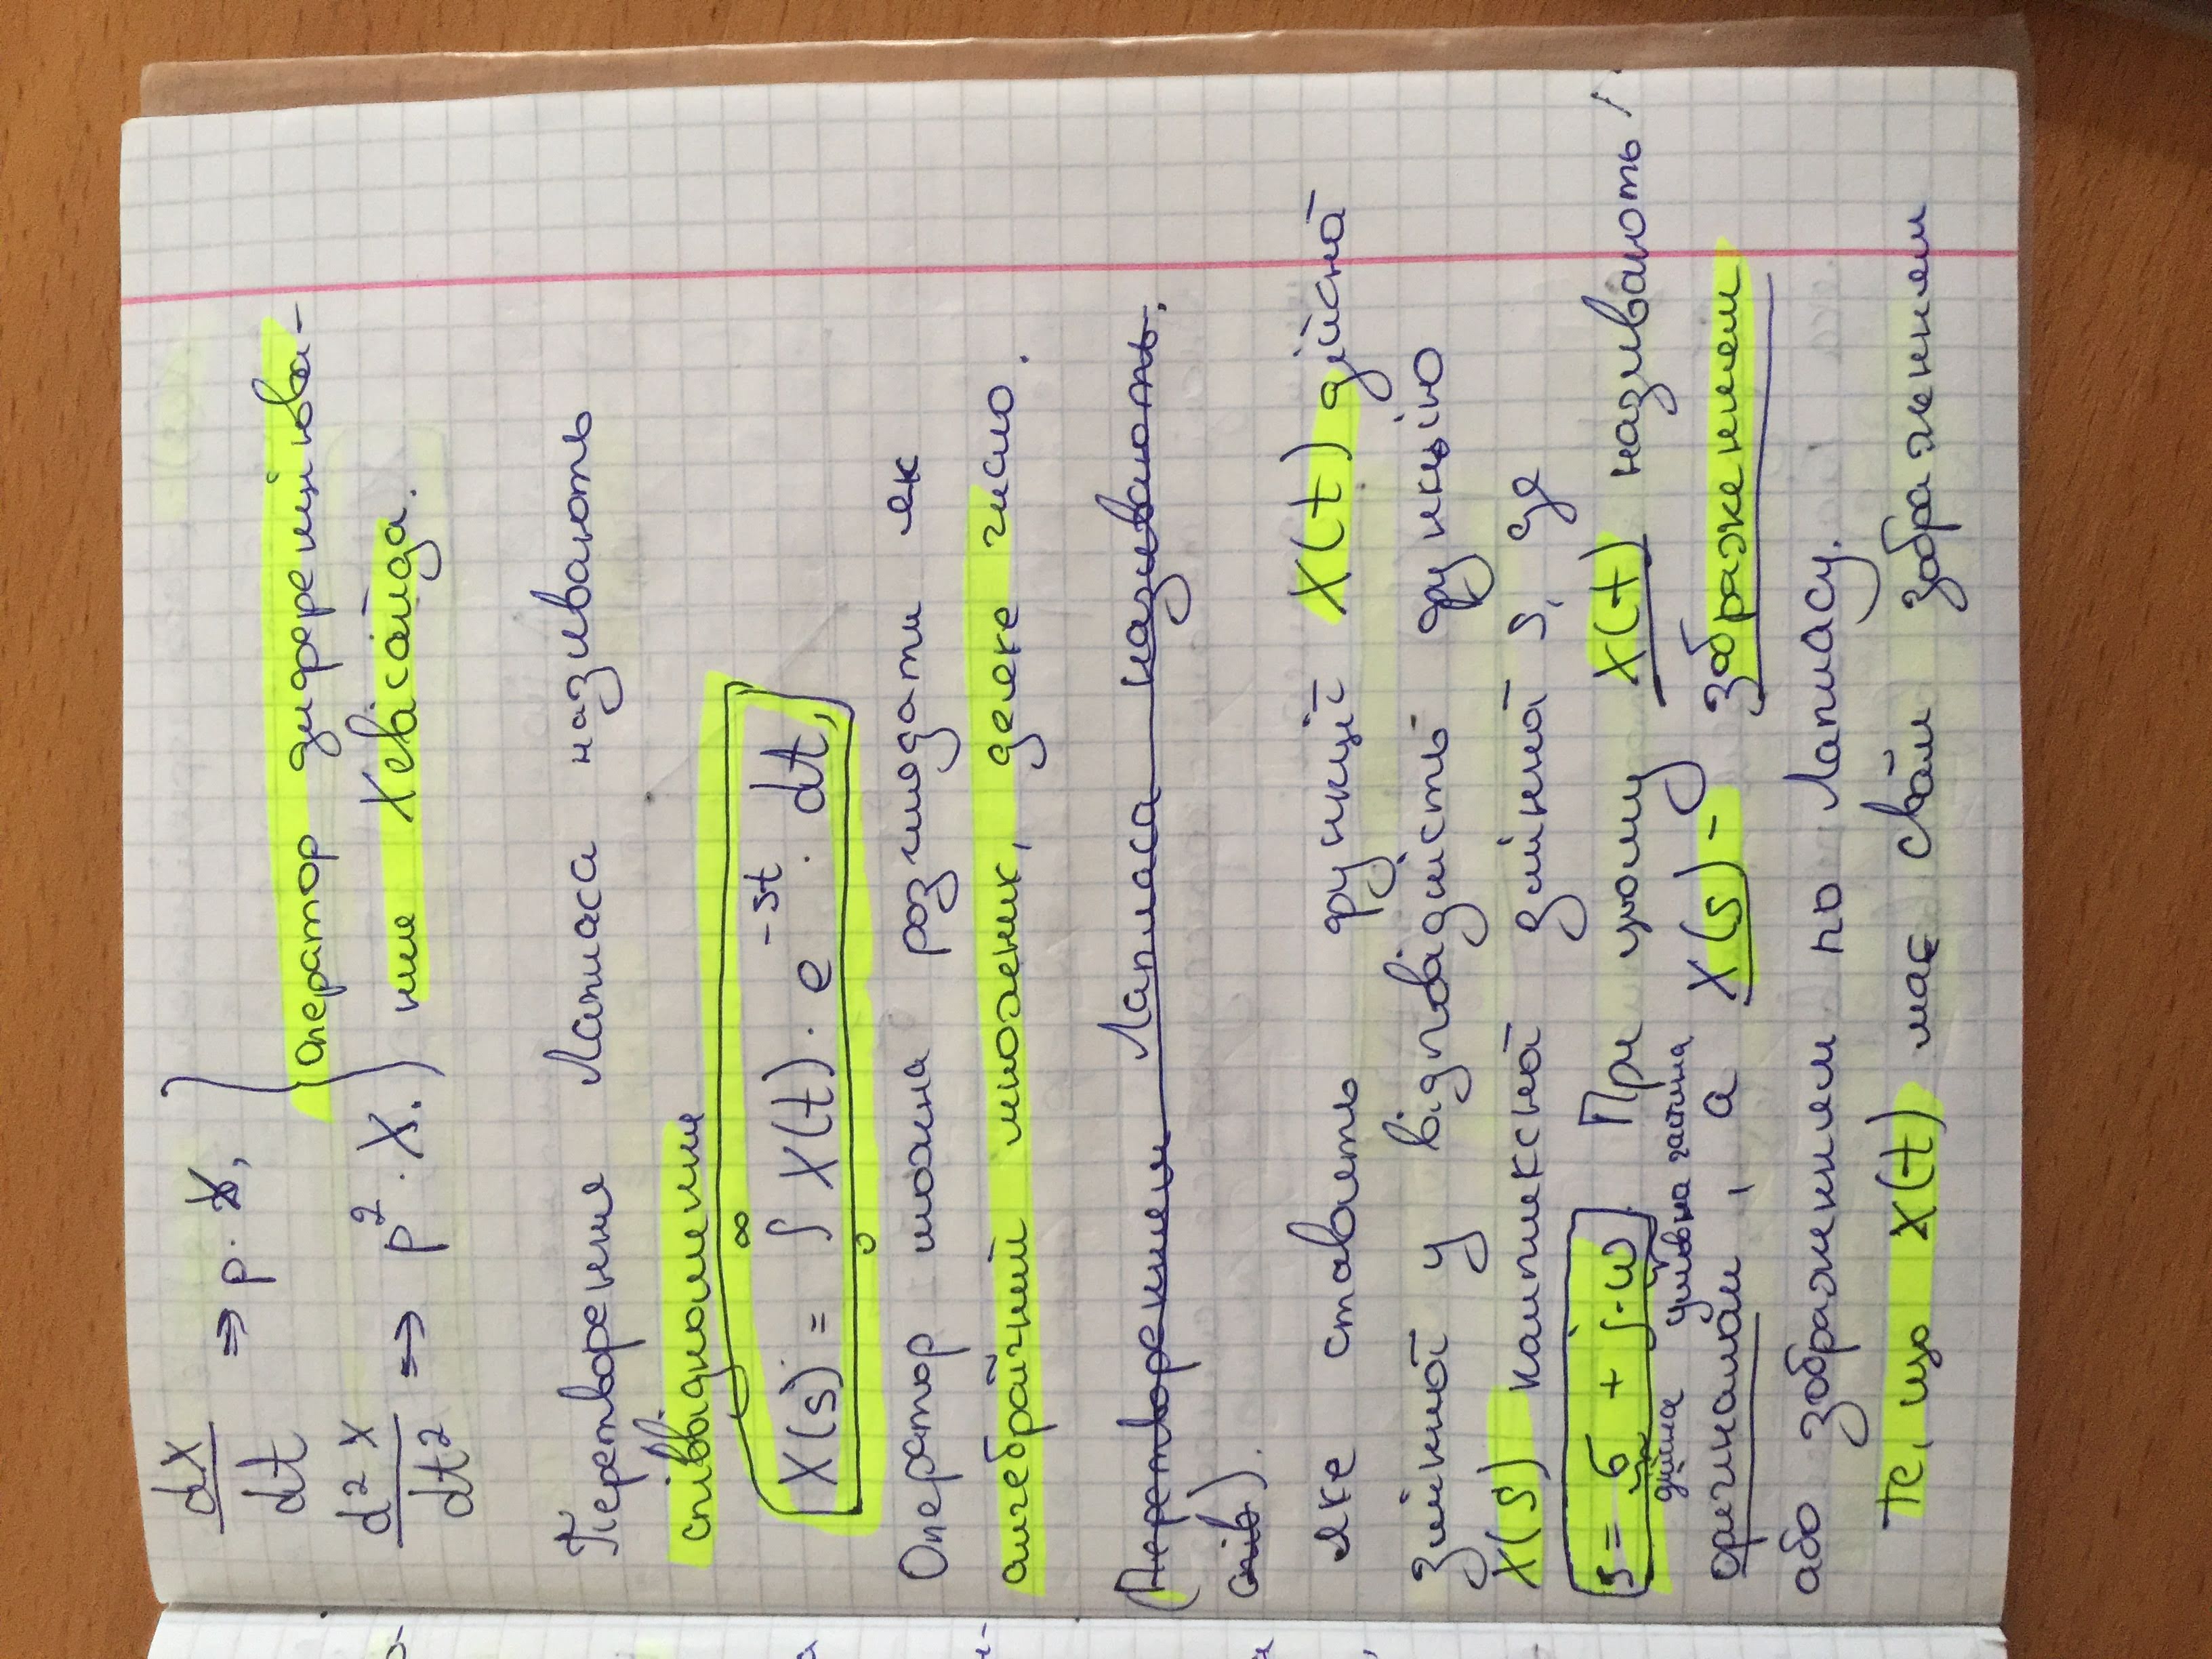 dX/dt ⇒ p · X,
d²X/dt² ⇒ p² · X.
оператор диференціюва-
ння Хевісайда.
Перетворення Лапласа називають
співвідношення
X(s) = ∫₀^∞ X(t) · e^(-st) · dt,
Оператор можна розглядати як
алгебраїчний множник, деяке число.
(Перетворенням Лапласа називають.
спів).
яке ставить функції X(t) дійсної
змінної у відповідність функцію
X(s) комплексної змінної s, де
s = σ + j·ω. При цьому X(t) називають
дійсна уявна частина
оригіналом, а X(s) - зображенням
або зображенням по Лапласу.
Те, що X(t) має своїм зображенням